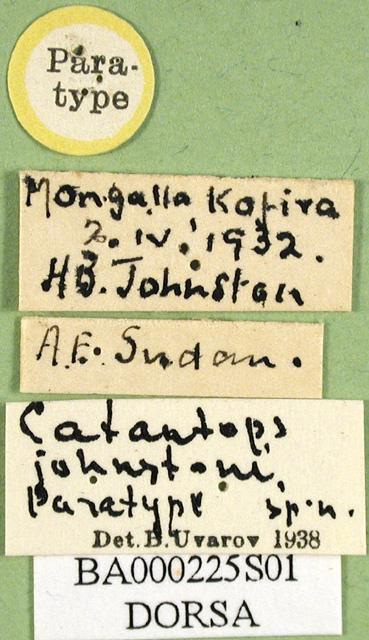 Para-
type
Mongalla Kofira
2.IV.1932.
H.B. Johnston
A.E. Sudan.
Catantops
johnstoni,
Paratype sp.n.
Det. B. Uvarov 1938
BA000225S01
DORSA